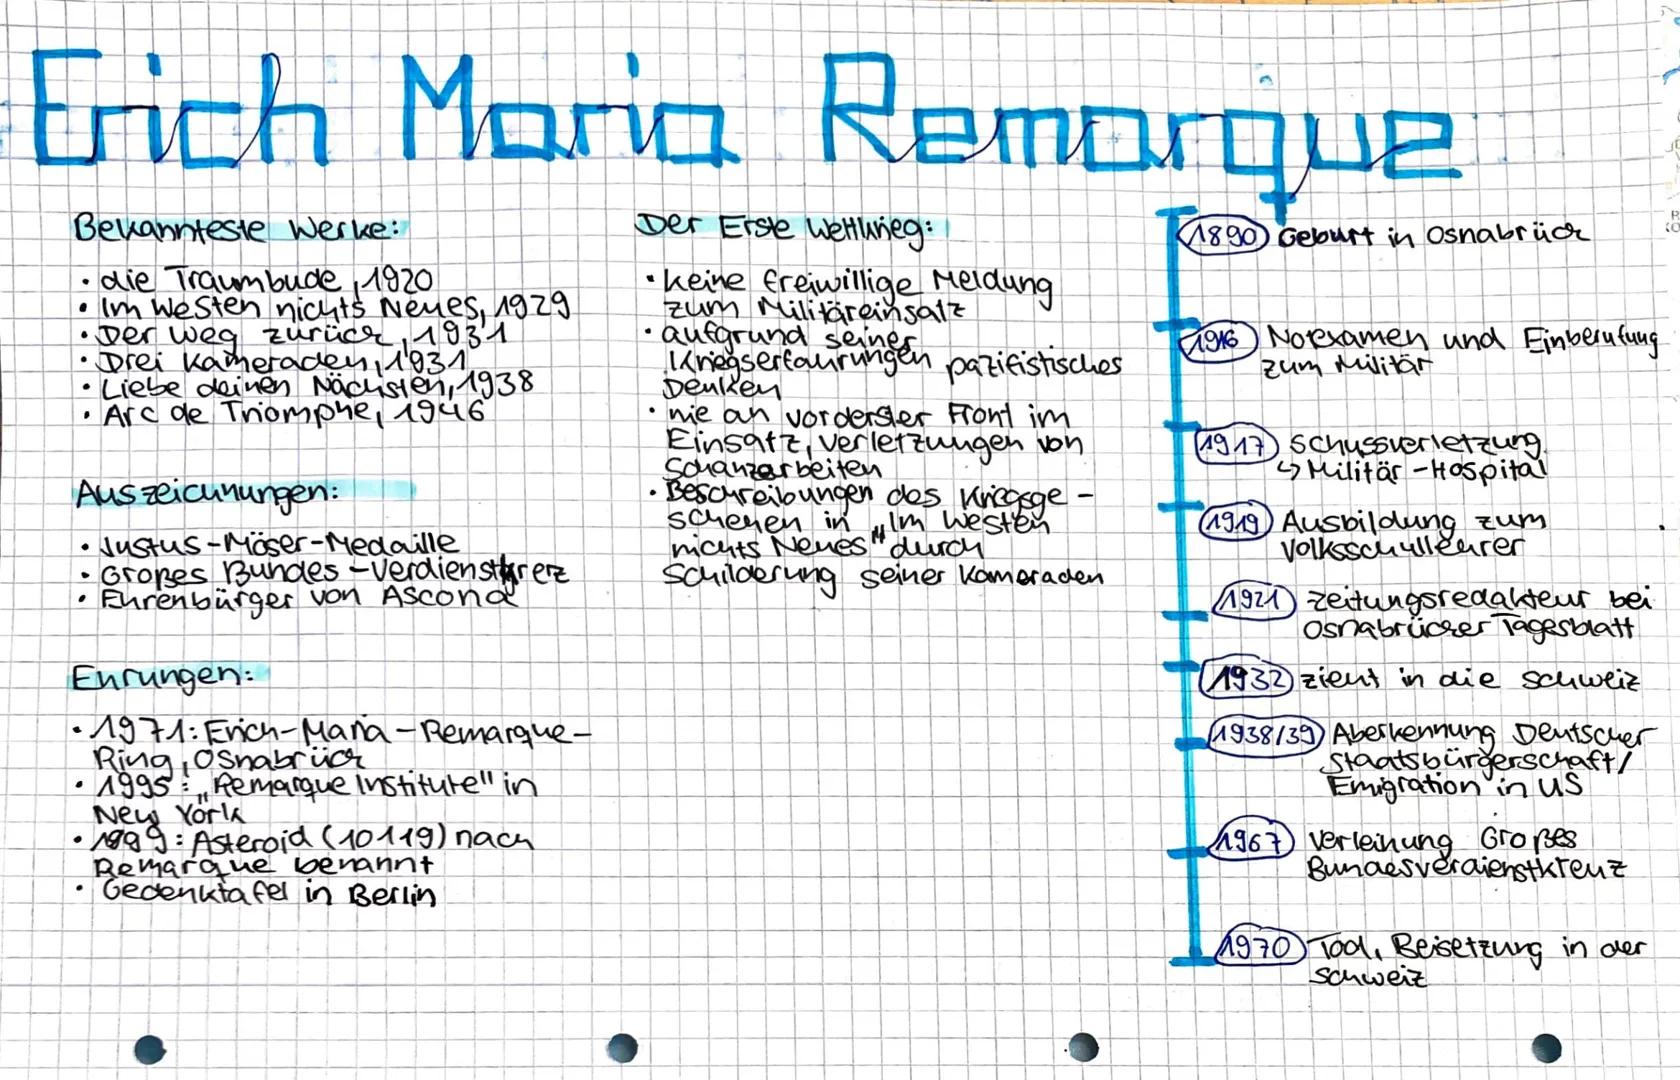 Erich Maria Remarque
Bekannteste Werke:
• die Traumbude, 1920
• Im Westen nichts Neues, 1929
• Der Weg zurück, 1931
• Drei Kameraden, 1931
• Liebe deinen Nächsten, 1938
• Arc de Triomphe, 1946
Auszeichnungen:
• Justus-Möser-Medaille
• Großes Bundes-Verdienstkreuz
• Ehrenbürger von Ascona
Ehrungen:
• 1971: Erich-Maria-Remarque-
Ring, Osnabrück
• 1995: „Remarque Institute" in
New York
• 1999: Asteroid (10119) nach
Remarque benannt
• Gedenktafel in Berlin
Der Erste Weltkrieg:
• keine freiwillige Meldung
zum Militäreinsatz
• aufgrund seiner
Kriegserfahrungen pazifistisches
Denken
• nie an vorderster Front im
Einsatz, Verletzungen von
Schanzarbeiten
• Beschreibungen des Kriegsge-
schehen in „Im Westen
nichts Neues" durch
Schilderung seiner Kameraden
1890 Geburt in Osnabrück
1916 Notexamen und Einberufung
zum Militär
1917 Schussverletzung
↳ Militär-Hospital
1919 Ausbildung zum
Volksschullehrer
1921 Zeitungsredakteur bei
Osnabrücker Tagesblatt
1932 zieht in die Schweiz
1938/39 Aberkennung Deutscher
Staatsbürgerschaft/
Emigration in US
1967 Verleihung Großes
Bundesverdienstkreuz
1970 Tod, Beisetzung in der
Schweiz